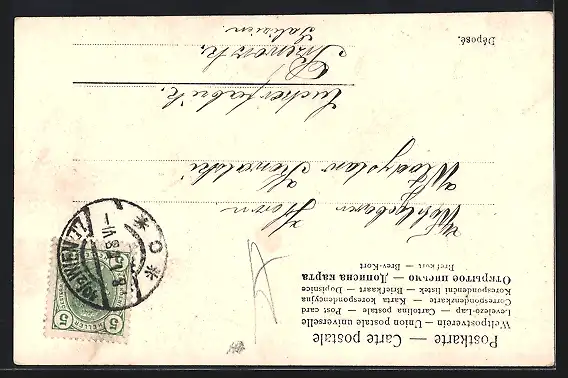 Postkarte — Carte postale
Weltpostverein — Union postale universelle
Levelező-Lap — Cartolina postale — Post card
Correspondenzkarte — Karta korespondencyjna
Korespondenční lístek — Briefkaart — Dopisnice
Открытое письмо — Дописна карта
Brefkort — Brev-Kort
Wohlgeboren Herrn
Wladyslaw Kowalski
Zuckerfabrik,
Przeworsk
Galizien.
Déposé.
WIEN 77
5 HELLER 5